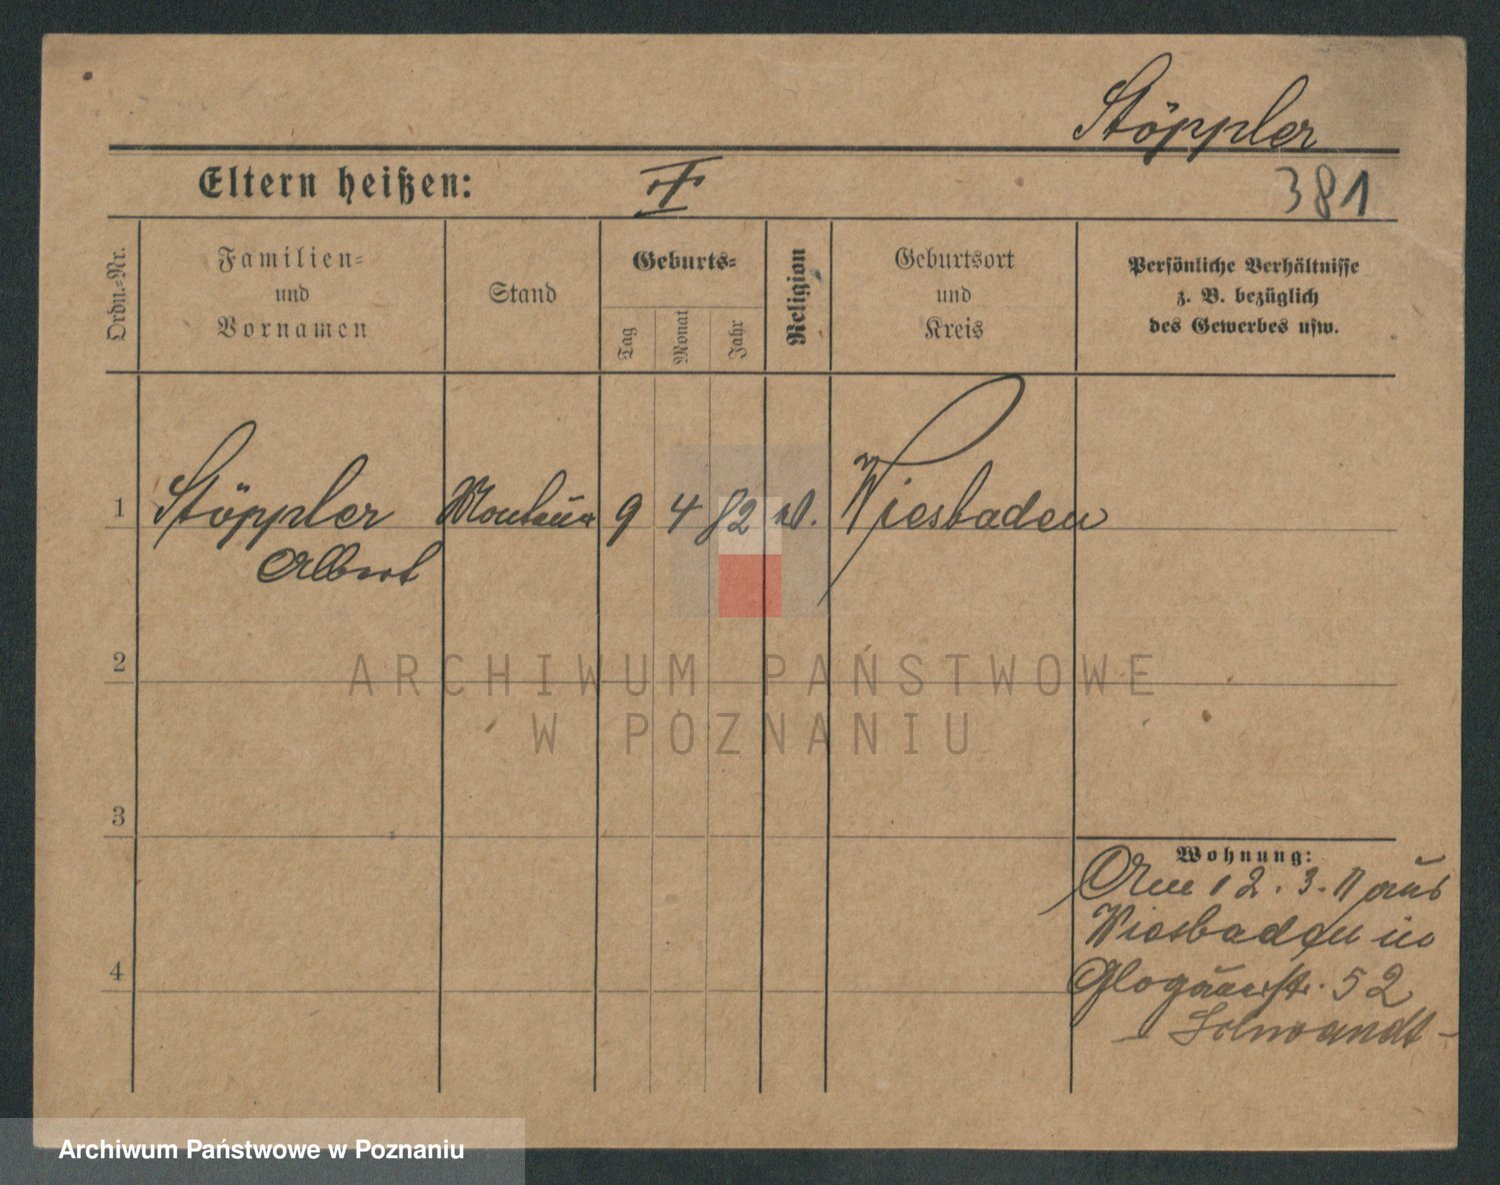 Stöppler
Eltern heißen:
381
Ordn.-Nr.
Familien-
und
Vornamen
Stand
Geburts-
Tag
Monat
Jahr
Religion
Geburtsort
und
Kreis
Persönliche Verhältnisse
z. B. bezüglich
des Gewerbes usw.
1 Stöppler Monteur 9 4 82 Wiesbaden
Albert
2
3
4
Wohnung:
Am 12. 3. 11 aus
Wiesbaden in
Glogauerstr. 52
ARCHIWUM PAŃSTWOWE
W POZNANIU
Archiwum Państwowe w Poznaniu